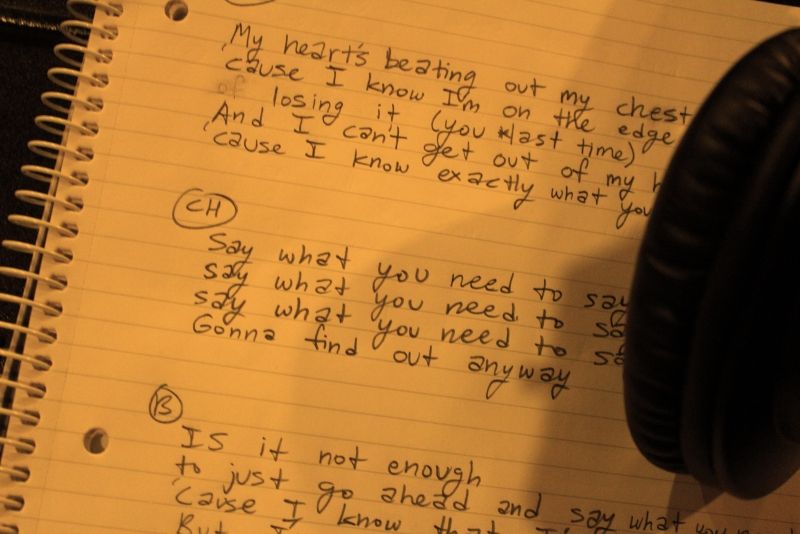 My heart's beating out my chest
'cause I know I'm on the edge
of losing it (you *last time)
And I can't get out of my
'cause I know exactly what you
CH
Say what you need to say
say what you need to
say what you need to
Gonna find out anyway
B
IS it not enough
to just go ahead and say what you
'cause I know that
But I